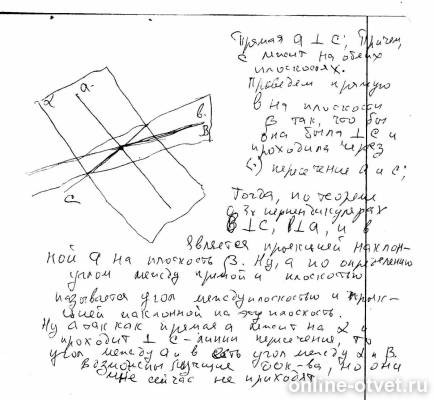 Прямая a ⊥ c; Причем,
c лежит на обеих
плоскостях.
Проведем прямую
в на плоскости
β так, что бы
она была ⊥ c и
проходила через
(·) пересечение a и c;
Тогда, по теореме
о 3х перпендикулярах
в ⊥ c, и в
является проекцией наклон-
ной a на плоскость β. Ну, а по определению
углом между прямой и плоскостью
называется угол между плоскостью и
наклонной на эту плоскость.
Ну а так как прямая a лежит на α и
проходит ⊥ c - линии пересечения, то
угол между a и в есть угол между α и β.
Возможны лучшие док-ва, но они
мне сейчас не приходят
α
a
в
β
c
online-otvet.ru